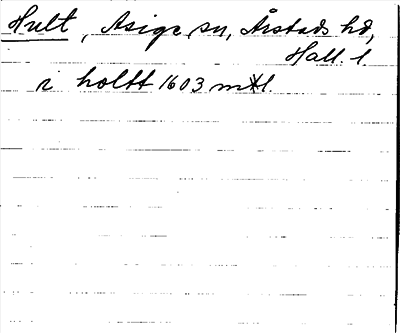 Hult, Asige sn, Årstads hd,
Hall. l.
i holtt 1603 mtl.